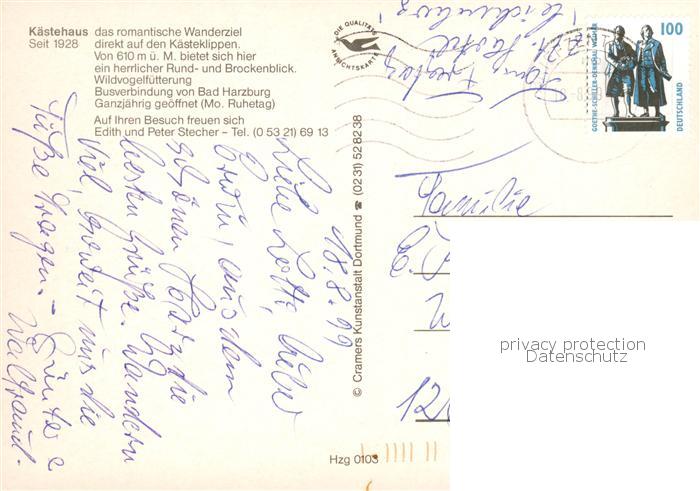 Kästehaus das romantische Wanderziel
Seit 1928 direkt auf den Kästeklippen.
Von 610 m ü. M. bietet sich hier
ein herrlicher Rund- und Brockenblick.
Wildvogelfütterung
Busverbindung von Bad Harzburg
Ganzjährig geöffnet (Mo. Ruhetag)
Auf Ihren Besuch freuen sich
Edith und Peter Stecher – Tel. (0 53 21) 69 13
DIE QUALITÄTS
ANSICHTSKARTE
18.8.99
Liebe Lotti, lieber
Erwin, aus dem
schönen Harz die
besten Grüße. Wandern
viel, soweit uns die
Füße tragen. –
Günter &
Waltraud.
© Cramers Kunstanstalt Dortmund ☎ (0231) 52 82 38
Hzg 0103
100
GOETHE-SCHILLER-DENKMAL WEIMAR
DEUTSCHLAND
Familie
E.
12
privacy protection
Datenschutz